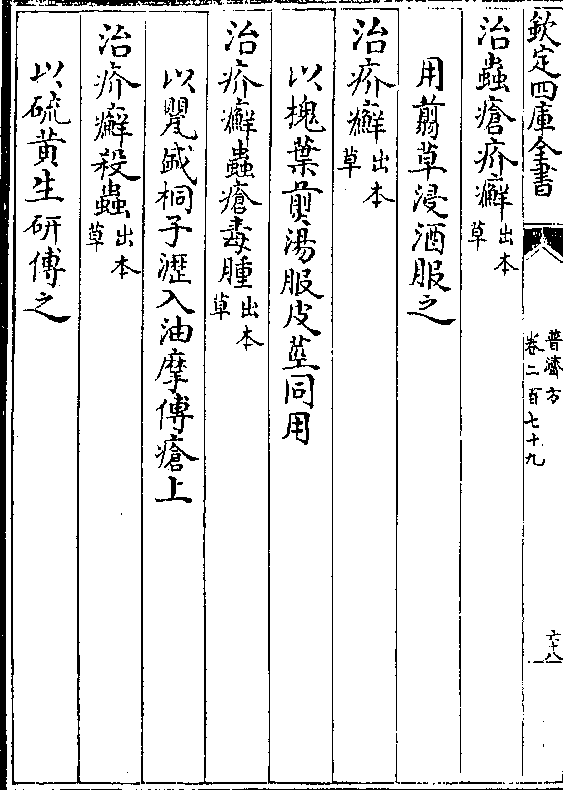 欽定四庫全書
普濟方
卷二百七十九
六十八
治蟲瘡疥癬出本草
用翦草浸酒服之
治疥癬出本草
以槐葉煎湯服皮莖同用
治疥癬蟲瘡毒腫出本草
以桐子瀝入油摩傅瘡上
治疥癬殺蟲出本草
以硫黄生研傅之